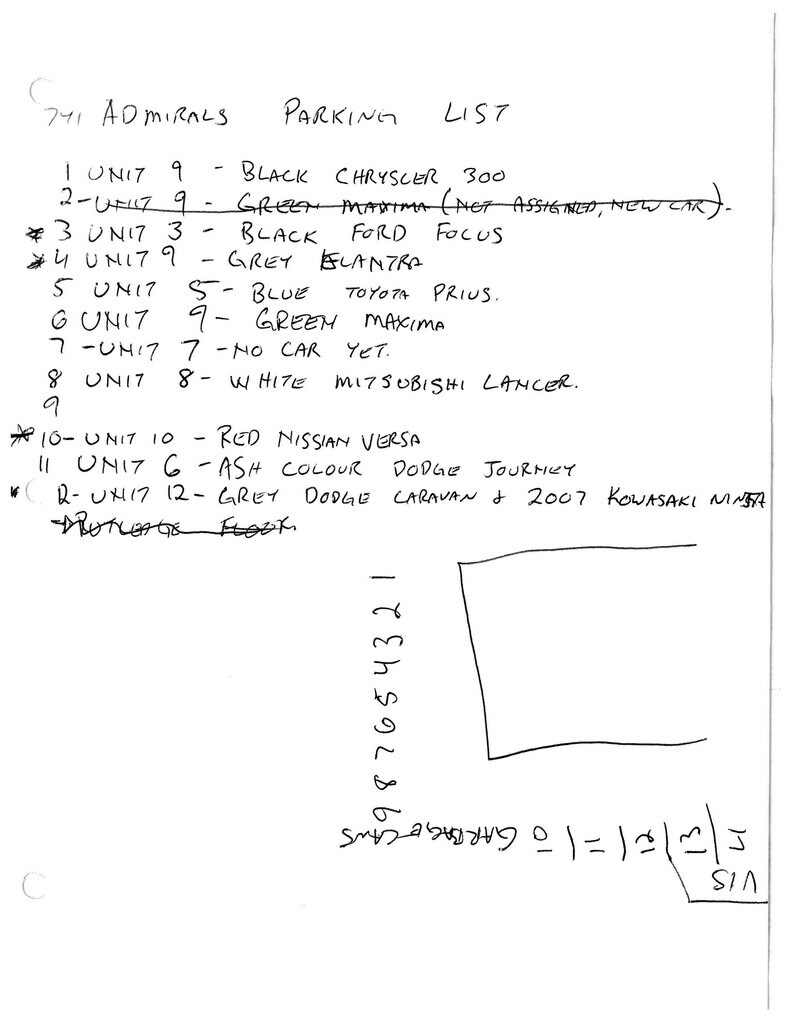 741 ADMIRALS PARKING LIST
1 UNIT 9 - BLACK CHRYSLER 300
2 - UNIT 9 - GREEN MAXIMA (NOT ASSIGNED, NEW CAR).
* 3 UNIT 3 - BLACK FORD FOCUS
* 4 UNIT 9 - GREY ELANTRA
5 UNIT 5 - BLUE TOYOTA PRIUS.
6 UNIT 9 - GREEN MAXIMA
7 - UNIT 7 - NO CAR YET.
8 UNIT 8 - WHITE MITSUBISHI LANCER.
9
* 10 - UNIT 10 - RED NISSIAN VERSA
11 UNIT 6 - ASH COLOUR DODGE JOURNEY
* 12 - UNIT 12 - GREY DODGE CARAVAN & 2007 KOWASAKI NINJA
1
2
3
4
5
6
7
8
9
GARBAGE CANS
10
11
12
13
VIS